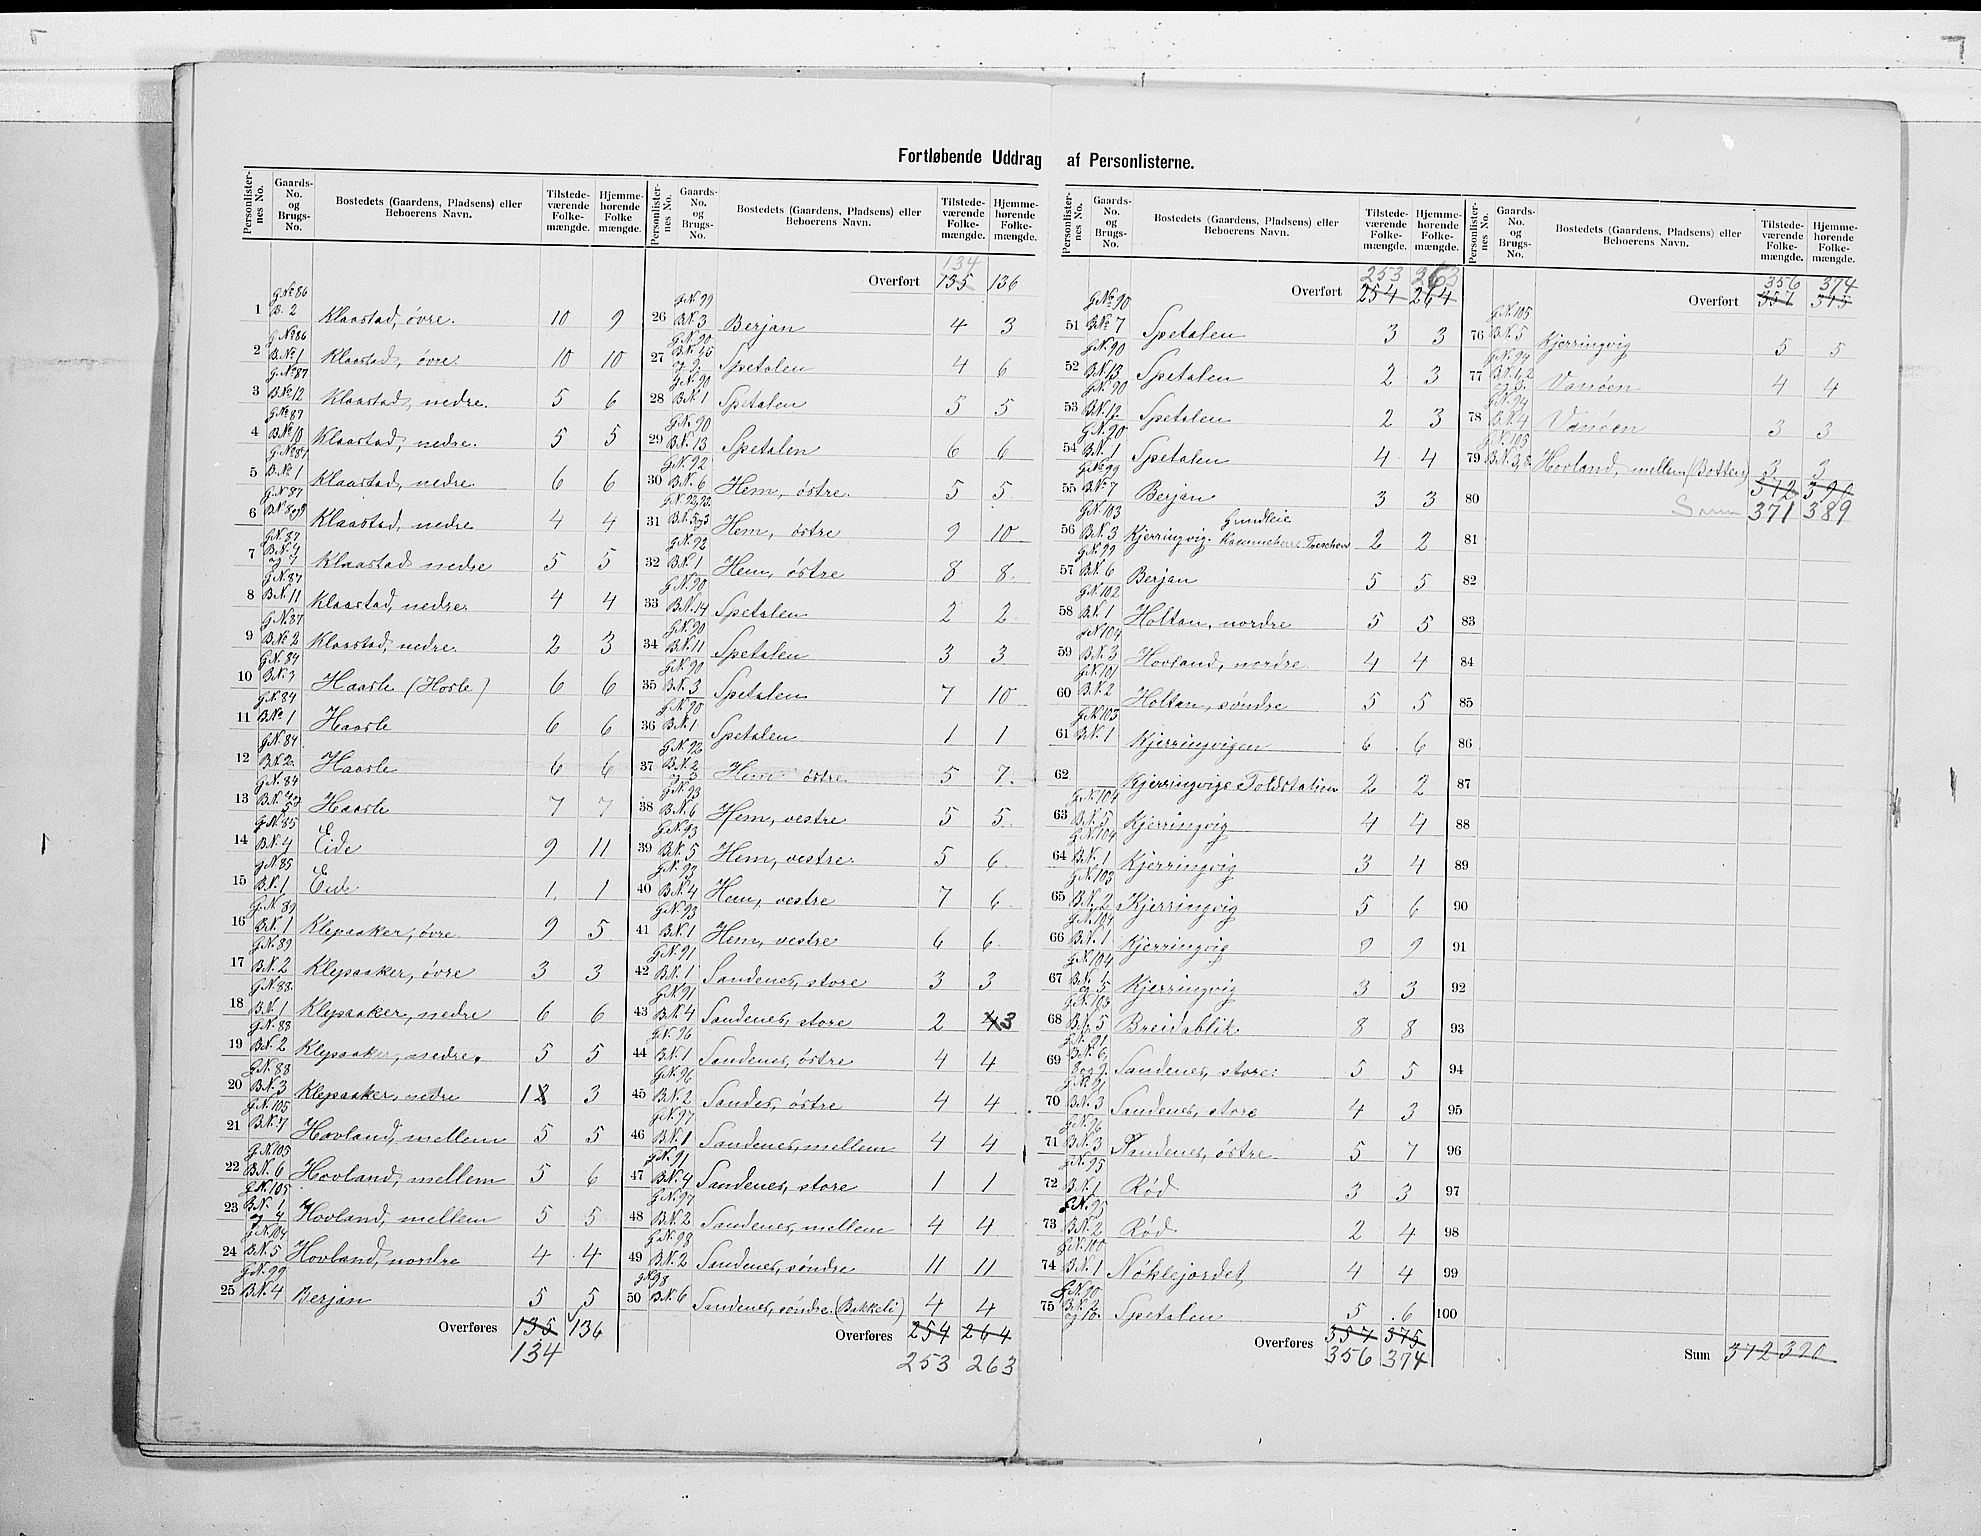 Fortløbende Uddrag af Personlisterne.
Personlisternes No. Gaards-No. og Brugs-No. Bostedets (Gaardens, Pladsens) eller Beboerens Navn. Tilstedeværende Folkemængde. Hjemmehørende Folkemængde.
134
Overført 135 136
1 G.No 86 B. 2 Klaastad, øvre. 10 9
2 G.No 86 B.No 1 Klaastad, øvre. 10 10
3 G.No 87 B.No 12 Klaastad, nedre. 5 6
4 G.No 87 B.No 10 Klaastad, nedre. 5 5
5 G.No 87 B.No 1 Klaastad, nedre. 6 6
6 G.N. 87 B.N. 8 og 9 Klaastad, nedre 4 4
7 G.N. 87 B.N. 4 og 7 Klaastad nedre 5 5
8 G.N. 87 B.N. 11 Klaastad, nedre. 4 4
9 G.N. 87 B.No 2 Klaastad, nedre. 2 3
10 G.N. 84 B.N. 3 Haasle (Hosle) 6 6
11 G.N. 84 B.No 1 Haasle 6 6
12 G.N. 84 B.N. 2 Haasle 6 6
13 G.N. 84 B.N. 4 og 5 Haasle 7 7
14 G.N. 85 B.N. 4 Eide 9 11
15 G.N. 85 B.N. 1 Eide 1 1
16 G.N. 89 B.N. 1 Klepaaker, øvre 9 5
17 G.N. 89 B.N. 2 Klepaaker, øvre 3 3
18 G.N. 88 B.N. 1 Klepaaker, nedre 6 6
19 G.N. 88 B.N. 2 Klepaaker, nedre. 5 5
20 G.N. 88 B.N. 3 Klepaaker, nedre 1 3
21 G.N. 105 B.N. 7 Hovland, mellem 5 5
22 G.N. 105 B.N. 6 Hovland, mellem 5 6
23 G.N. 105 B.N. 1 og 4 Hovland, mellem 5 5
24 G.N. 104 B.N. 5 Hovland, nordre 4 4
25 G.N. 99 B.N. 4 Berjan 5 5
Overføres 135 136
134
26 G.N. 99 B.N. 3 Berjan 4 3
27 G.N. 90 Spetalen 4 6
28 G.N. 90 B.N. 1 Spetalen 5 5
29 G.N. 90 B.N. 13 Spetalen 6 6
30 G.N. 92 B.N. 6 Hem, østre. 5 5
31 Hem, østre 9 10
32 G.N. 92 B.N. 1 Hem, østre 8 8
33 G.N. 90 B.N. 14 Spetalen 2 2
34 G.N. 90 B.N. 11 Spetalen 3 3
35 G.N. 90 B.N. 3 Spetalen 7 10
36 G.N. 90 B.N. 1 Spetalen 1 1
37 G.N. 92 B.N. 2 og 3 Hem østre 5 7
38 G.N. 93 B.N. 6 Hem, vestre 5 5
39 G.N. 93 B.N. 5 Hem, vestre. 5 6
40 G.N. 93 B.N. 4 Hem, vestre 7 6
41 G.N. 93 B.N. 1 Hem, vestre 6 6
42 G.N. 91 B.N. 1 Sandenes, store 3 3
43 G.N. 91 B.N. 4 Sandenes, store 2 4 3
44 G.N. 96 B.N. 1 Sandenes, østre 4 4
45 G.N. 96 B.N. 2 Sandes, østre 4 4
46 G.N. 97 B.N. 1 Sandenes, mellem 4 4
47 G.N. 91 B.N. 4 Sandenes, store 1 1
48 G.N. 97 B.N. 2 Sandenes, mellem 4 4
49 G.N. 98 B.N. 2 Sandenes, søndre 11 11
50 G.N. 98 B.N. 6 Sandenes, søndre. (Bakkeli) 4 4
Overføres 254 264
253 263
Personlisternes No. Gaards-No. og Brugs-No. Bostedets (Gaardens, Pladsens) eller Beboerens Navn. Tilstedeværende Folkemængde. Hjemmehørende Folkemængde.
253 263
Overført 254 264
51 G.No 90 B.No 7 Spetalen 3 3
52 G.N. 90 B.N. 13 Spetalen 2 3
53 G.N. 90 B.N. 12 Spetalen 2 3
54 G.N. 90 B.N. 1 Spetalen 4 4
55 G.No 99 B.No 7 Berjan 3 3
56 G.N. 103 B.N. 3 Kjerringvig. Grundleie Kammerherre Treschow 2 2
57 G.N. 99 B.N. 6 Berjan 5 5
58 G.N. 102 B.N. 1 Holtan, nordre 5 5
59 G.N. 104 B.N. 3 Hovland, nordre. 4 4
60 G.N. 101 B.N. 2 Holtan, søndre 5 5
61 G.N. 103 B.N. 1 Kjerringvigen 6 6
62 Kjerringvigs Toldstation 2 2
63 G.N. 104 B.N. 5 Kjerringvig 4 4
64 G.N. 104 B.N. 1 Kjerringvig 3 4
65 G.N. 103 B.N. 2 Kjerringvig 5 6
66 G.N. 104 B.N. 1 Kjerringvig 9 9
67 G.N. 104 B.N. 1 og 5 Kjerringvig 3 3
68 G.N. 103 B.N. 5 Breidablik 8 8
69 G.N. 91 B.N. 6, 8 og 9. Sandenes, store: 5 5
70 G.No 91 B.N. 3 Sandenes, store 4 3
71 G.N. 96 B.N. 3 Sandenes, østre 5 7
72 G.N. 95 B.N. 1 Rød 3 3
73 G.N. 95 B.N. 2 Rød 2 4
74 G.N. 100 B.N. 1 Nøklejordet 4 4
75 G.N. 90 B.N. 2 og 10. Spetalen 5 6
Overføres 357 375
356 374
356 374
Overført 357 375
76 G.N. 105 B.N. 5 Kjerringvig 5 5
77 G.N. 94 B.N. 1, 2 og 3. Vanøen 4 4
78 G.N. 94 B.N. 4 Vanøen 3 3
79 G.N. 105 Hovland, mellem (Botten) 3 3
80 372 390
Sum 371 389
81
82
83
84
85
86
87
88
89
90
91
92
93
94
95
96
97
98
99
100
Sum 372 390